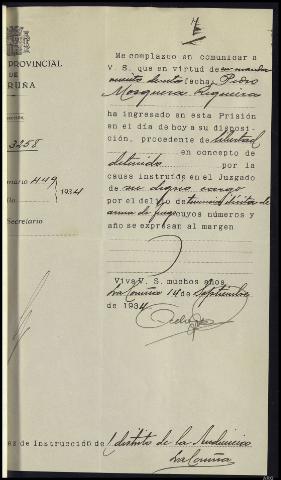 4
PROVINCIAL
DE
RUÑA
3258
Me complazco en comunicar a
V. S. que en virtud de su manda
miento de esta fecha, Pedro
Mosquera Regueira
ha ingresado en esta Prisión
en el día de hoy a su disposi-
ción, procedente de libertad
en concepto de
detenido por la
causa instruída en el Juzgado
de su digno cargo
por el delito de tenencia ilícita de
arma de fuego cuyos números y
año se expresan al margen
nario 449
1934
Secretario
Viva V. S. muchos años
La Coruña 14 de Septiembre
de 1934
ez de instrucción de 1 distrito de la Audiencia
La Coruña